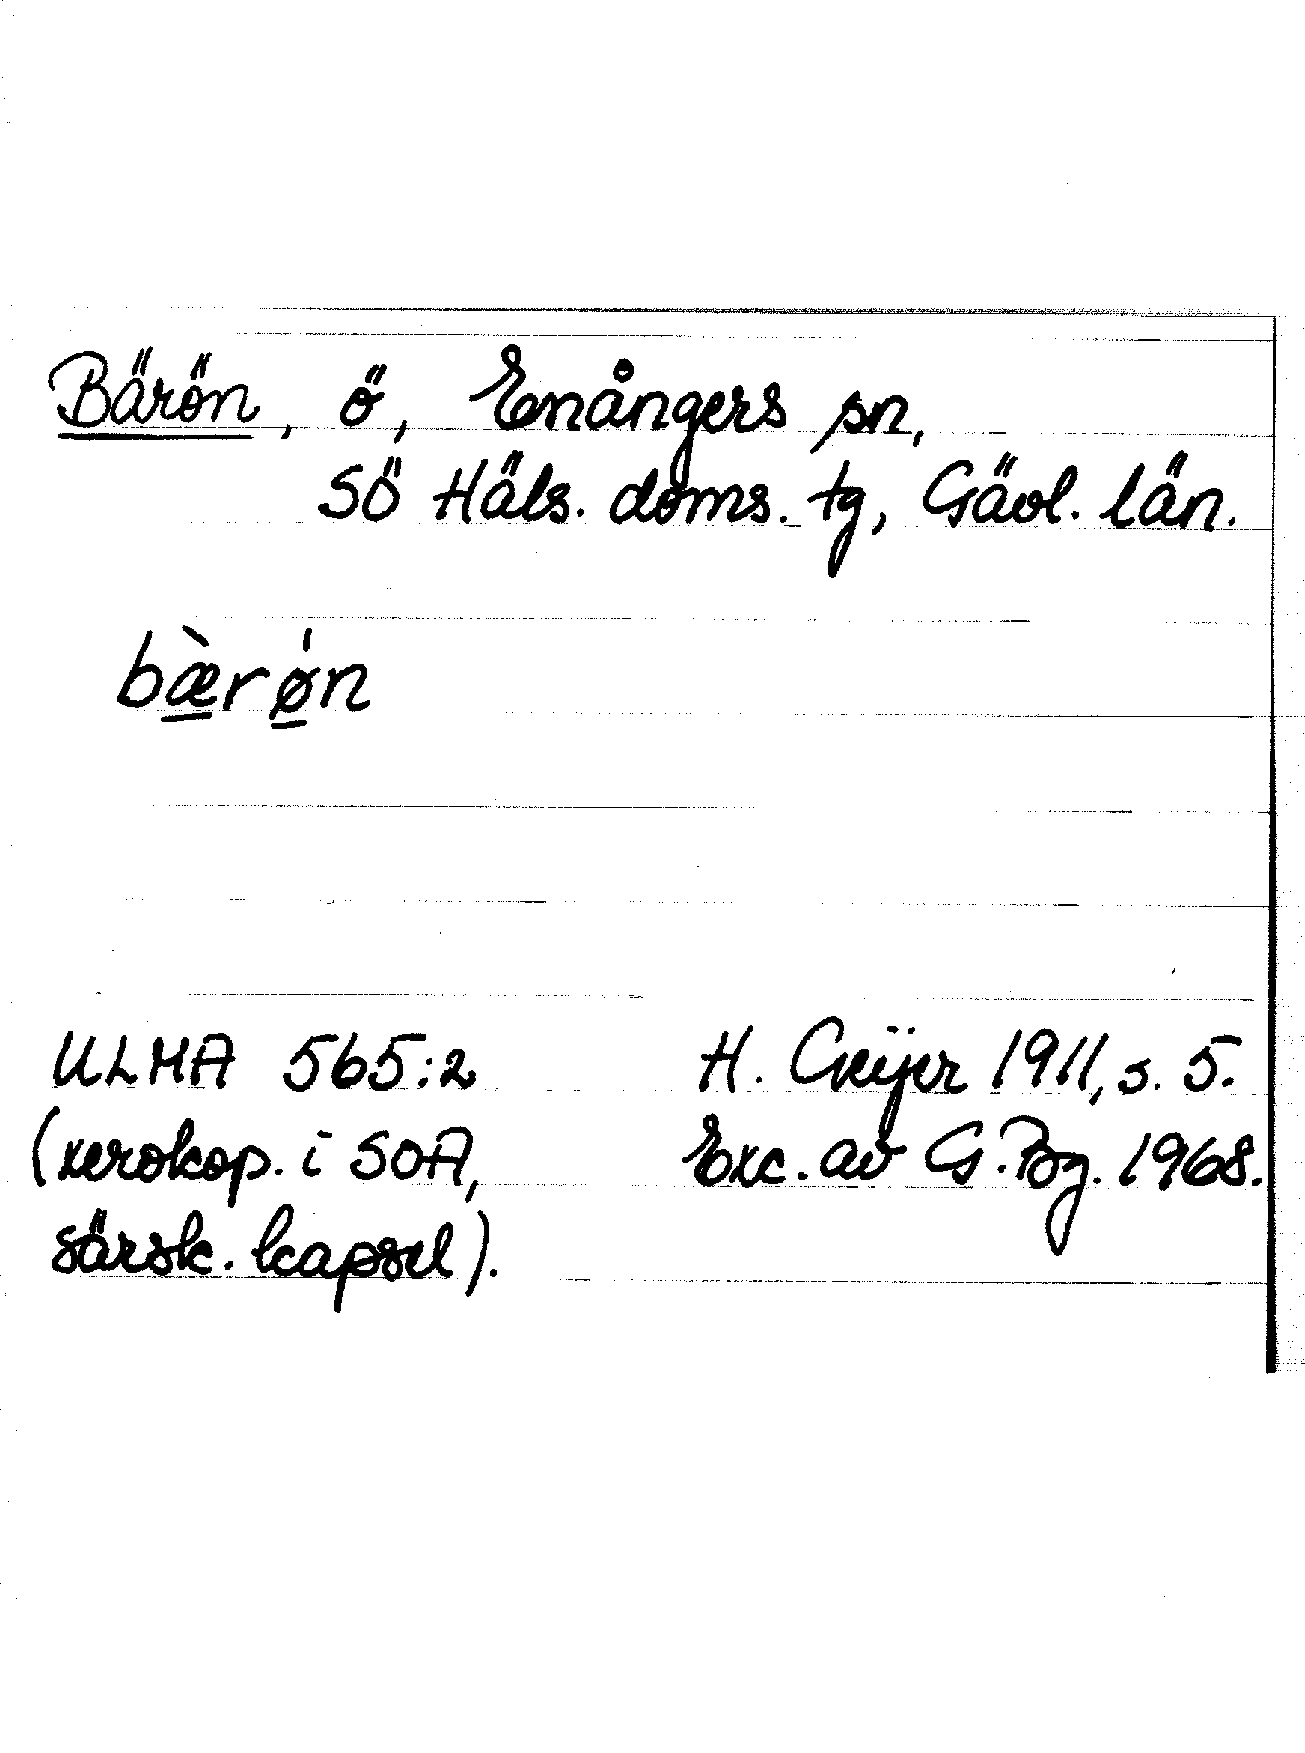 Bärön, ö, Enångers sn,
SÖ Häls. doms. tg, Gävl. län.
bæ̱̀rǿ̱n
ULMA 565:2
(xerokop. i SOA,
särsk. kapsel).
H. Geijer 1911, s. 5.
Exc. av G. Bg. 1968.